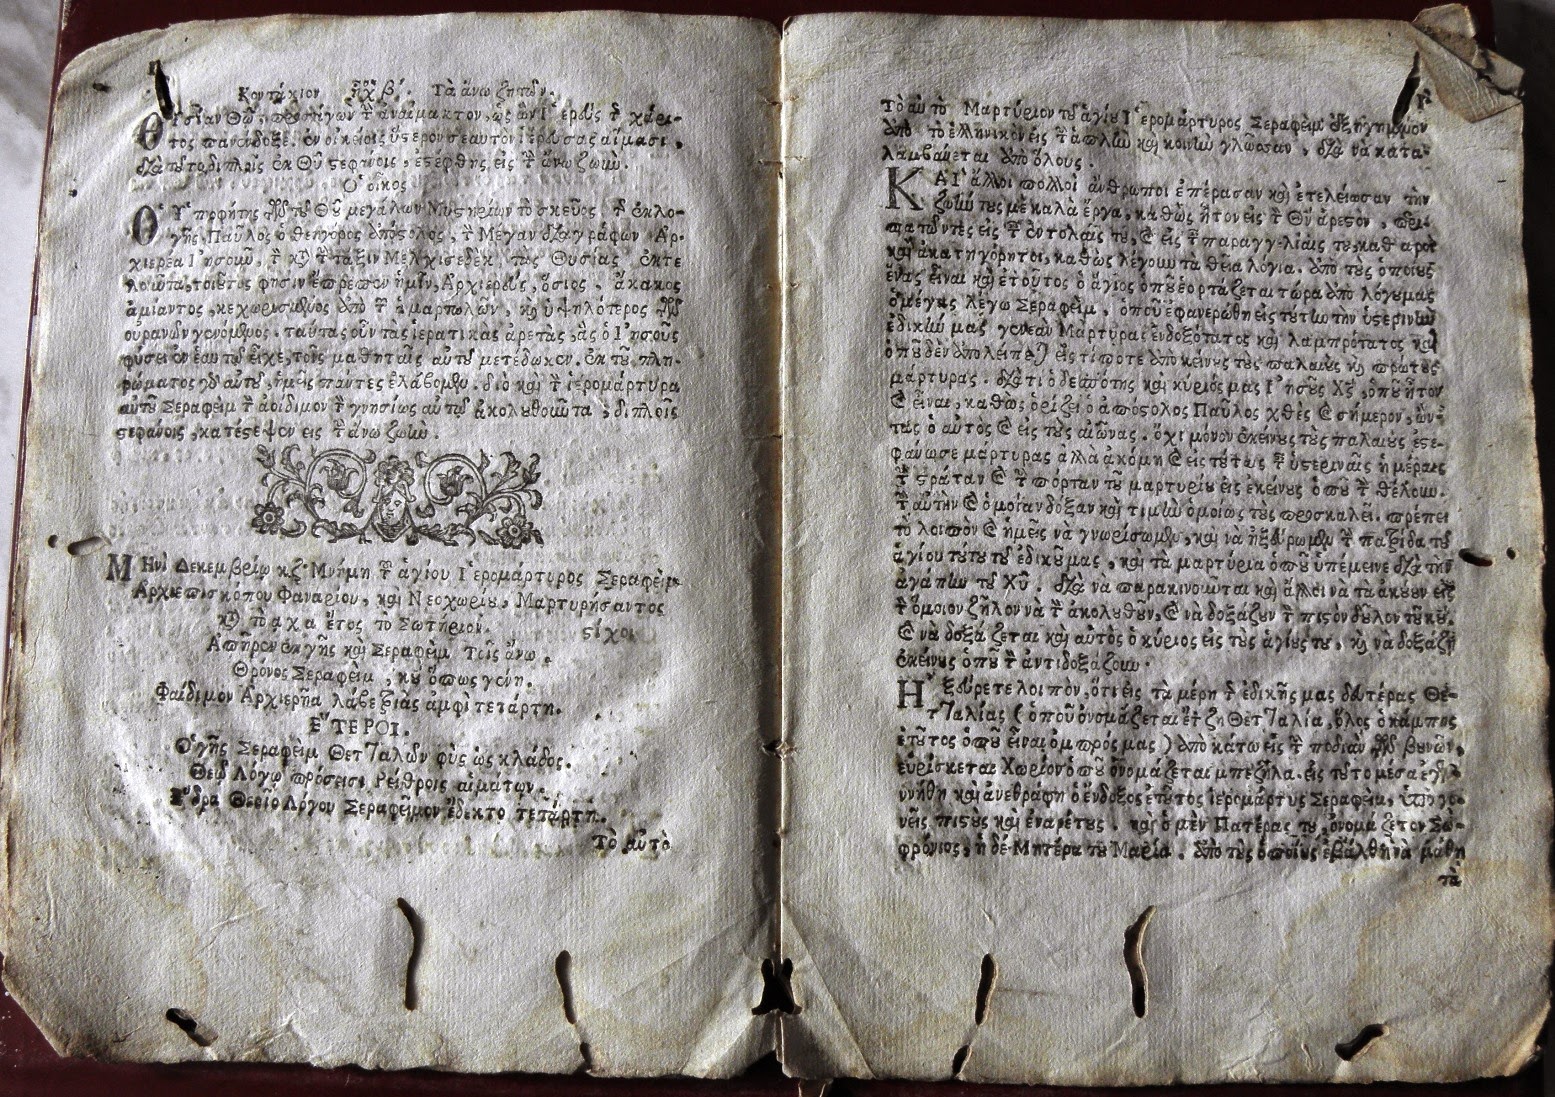 Κοντάκιον ἦχ β΄. Τὰ ἄνω ζητῶν.
ΘΥσίαν Θῷ, προσάγων τ̀ ἀναίμακτον, ὡς ὢν Ἱερεὺς τ̃ χάρι-
τος πανένδοξε. ἐν οἰκείοις ὕστερον σεαυτὸν ἱέρευσας αἵμασι,
διὰ τοῦτο διπλοῖς ἐκ Θῦ στεφάνοις, ἐστέφθης εἰς τ̀ ἄνω ζωήν.
Ὁ οἶκος
Ὁ Ὑποφήτης τῶν τοῦ Θῦ μεγάλων Μυστηρίων τὸ σκεῦος, τ̃ ἐκλο-
γῆς, Παῦλος ὁ θεηγόρος ἀπόστολος, τ̀ Μέγαν διαγράφων Ἀρ-
χιερέα Ἰησοῦν, τ̀ κατὰ τ̀ τάξιν Μελχισεδὲκ, τὰς Θυσίας ἐκτε
λοῦντα, τοιοῦτος φησὶν ἔπρεπεν ἡμῖν, Ἀρχιερεὺς, ὅσιος, ἄκακος
ἀμίαντος, κεχωρισμένος ἀπὸ τ̃ ἁμαρτωλῶν, καὶ ὑψηλότερος τῶν
οὐρανῶν γενόμενος. ταύτας οὖν τὰς ἱερατικὰς ἀρετὰς, ἃς ὁ Ἰησοῦς
φύσει ἐν ἑαυτῷ εἶχε, τοῖς μαθηταῖς αὐτοῦ μετέδωκεν. ἐκ τοῦ πλη-
ρώματος γὰρ αὐτοῦ, ἡμεῖς πάντες ἐλάβομεν. διὸ καὶ τ̀ ἱερομάρτυρα
αὐτοῦ Σεραφεὶμ τ̀ ἀοίδιμον τ̀ γνησίως αὐτῷ ἀκολουθοῦντα, διπλοῖς
στεφάνοις, κατέστεψεν εἰς τ̀ ἄνω ζωήν.
ΜΗνὶ Δεκεμβρίῳ κζ· Μνήμη τ̃ ἁγίου Ἱερομάρτυρος Σεραφεὶμ
Ἀρχιεπισκόπου Φαναρίου, καὶ Νεοχωρίου, Μαρτυρήσαντος
κατὰ τὸ αχα ἔτος τὸ Σωτήριον. στίχοι
Ἀπῆρεν ἐκ γῆς καὶ Σεραφεὶμ Τίῃς ἄνω,
Θρόνος Σεραφεὶμ, καὶ ὅπως γένῃ.
Φαίδιμον Ἀρχιερῆα λάβε Ξιὰς ἀμφὶ τετάρτῃ.
ἝΤΕΡΟΙ.
Ὁ γῆς Σεραφεὶμ Θετταλῶν φὺς ὡς κλάδος.
Θεῷ Λόγῳ πρόσεισι Ῥείθροις αἱμάτων.
Ἕδρα Λόγον Σεραφεῖμον ἔδεκτο τετάρτῃ.
Τὸ αὐτὸ
Τὸ αὐτὸ Μαρτύριον τοῦ ἁγίου Ἱερομάρτυρος Σεραφεὶμ ἐξηγημένον
ἀπὸ τὸ ἑλληνικὸν εἰς τ̀ ἁπλῶν καὶ κοινὴν γλῶσσαν, διὰ νὰ κατα-
λαμβάνεται ἀπὸ ὅλους.
ΚΑὶ ἄλλοι πολλοὶ ἄνθρωποι ἐπέρασαν καὶ ἐτελείωσαν τὴν
ζωήν τους μὲ καλὰ ἔργα, καθὼς ἦτον εἰς τ̀ Θῦ ἀρεστὸν, περι-
πατῶντες εἰς τ̀ ἐντολαῖς του, καὶ εἰς τ̀ παραγγελίαις του, καθαροὶ
καὶ ἀκατηγόρητοι, καθὼς λέγουν τὰ θεῖα λόγια. ἀπὸ τοὺς ὁποίους
ἕνας εἶναι καὶ ἐτοῦτος ὁ ἅγιος ὁποῦ ἑορτάζεται τώρα ἀπὸ λόγου μας
ὁ μέγας λέγω Σεραφεὶμ, ὁποῦ ἐφανερώθη εἰς τούτην τὴν ὑστερινὴν
ἐδικήν μας γενεὰν Μάρτυρας ἐνδοξότατος καὶ λαμπρότατος καὶ
ὁποῦ δὲν ἀπολείπεται εἰς τίποτε ἀπὸ κείνους τοὺς παλαιοὺς καὶ πρώτους
μάρτυρας. διὰ τὶ ὁ δεσπότης καὶ κύριός μας Ἰησοῦς Χς, ὁποῦ ἦτον
καὶ εἶναι, καθὼς ὁρίζει ὁ ἀπόστολος Παῦλος χθὲς καὶ σήμερον, ὤν-
τας ὁ αὐτὸς καὶ εἰς τοὺς αἰῶνας. ὄχι μόνον ἐκείνους τοὺς παλαιοὺς ἐστε-
φάνωσε μάρτυρας ἀλλὰ ἀκόμη καὶ εἰς τούταις τ̀ ὑστεριναῖς ἡμέραις
τ̀ στράταν καὶ τ̀ πόρταν τοῦ μαρτυρίου εἰς ἐκείνους ὁποῦ τ̀ θέλουν.
τ̀ αὐτὴν καὶ ὁμοίαν δόξαν καὶ τιμὴν ὁμοίως τοὺς προσκαλεῖ. πρέπει
τὸ λοιπὸν καὶ ἡμεῖς νὰ γνωρίσωμεν, καὶ νὰ ἠξεύρωμεν τ̀ πατρίδα τοῦ
ἁγίου τούτου τοῦ ἐδικοῦ μας, καὶ τὰ μαρτύρια ὁποῦ ὑπέμεινε διὰ τὴν
ἀγάπην τοῦ Χῦ. διὰ νὰ παρακινοῦνται καὶ ἄλλοι νὰ τὰ ἀκούουν εἰς
τ̀ ὅμοιον ζῆλον νὰ τ̀ ἀκολουθοῦν, καὶ νὰ δοξάζουν τ̀ πιστὸν δοῦλον τοῦ κυ.
καὶ νὰ δοξάζεται καὶ αὐτὸς ὁ κύριος εἰς τοὺς ἁγίους του, καὶ νὰ δοξάζῃ
ἐκείνους ὁποῦ τ̀ ἀντιδοξάζουν.
Ἠξεύρετε λοιπὸν, ὅτι εἰς τὰ μέρη τ̃ ἐδικῆς μας δευτέρας Θε-
τταλίας (ὁποῦ ὀνομάζεται ἔτζη Θετταλία, ὅλος ὁ κάμπος
ἐτοῦτος ὁποῦ εἶναι ὀμπρός μας) ἀπὸ κάτω εἰς τ̀ ποδιὰν τῶν βουνῶν,
εὑρίσκεται Χωρίον ὁποῦ ὀνομάζεται μπεζῆλα. εἰς τοῦτο μέσα ἐγε-
ννήθη καὶ ἀνεθράφη ὁ ἔνδοξος ἐτοῦτος ἱερομάρτυς Σεραφεὶμ, ἀπὸ γο-
νεῖς πιστοὺς καὶ ἐναρέτους. καὶ ὁ μὲν Πατέρας του, ὀνομάζετον Σω-
φρόνιος, ἡ δὲ Μητέρα του Μαρία. ἀπὸ τοὺς ὁποίους ἐβάλθη νὰ μάθῃ
τὰ